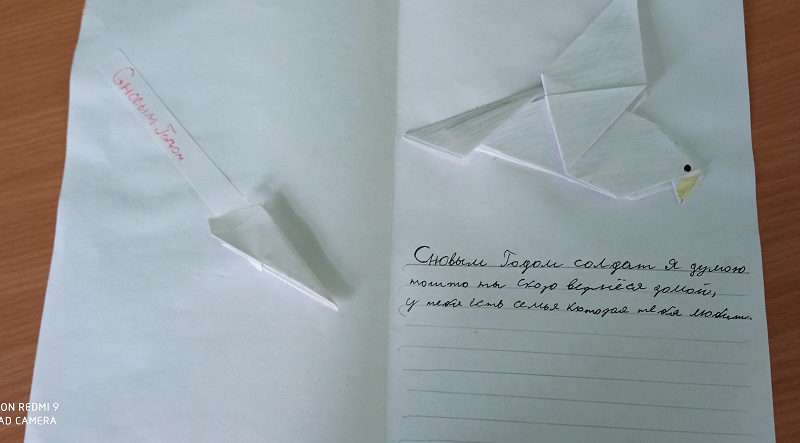 Сновым Годом
Сновым Годом солдат я думою
тошто ты скоро вернёся домой,
у тебя есть семья которая тебя любит.
ON REDMI 9
AD CAMERA